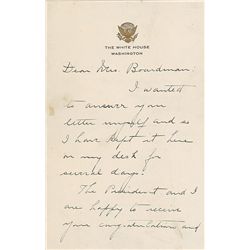 THE WHITE HOUSE
WASHINGTON
Dear Mrs. Boardman:
I wanted
to answer your
letter myself and so
I have kept it here
on my desk for
several days.
The President and I
are happy to receive
your congratulations and